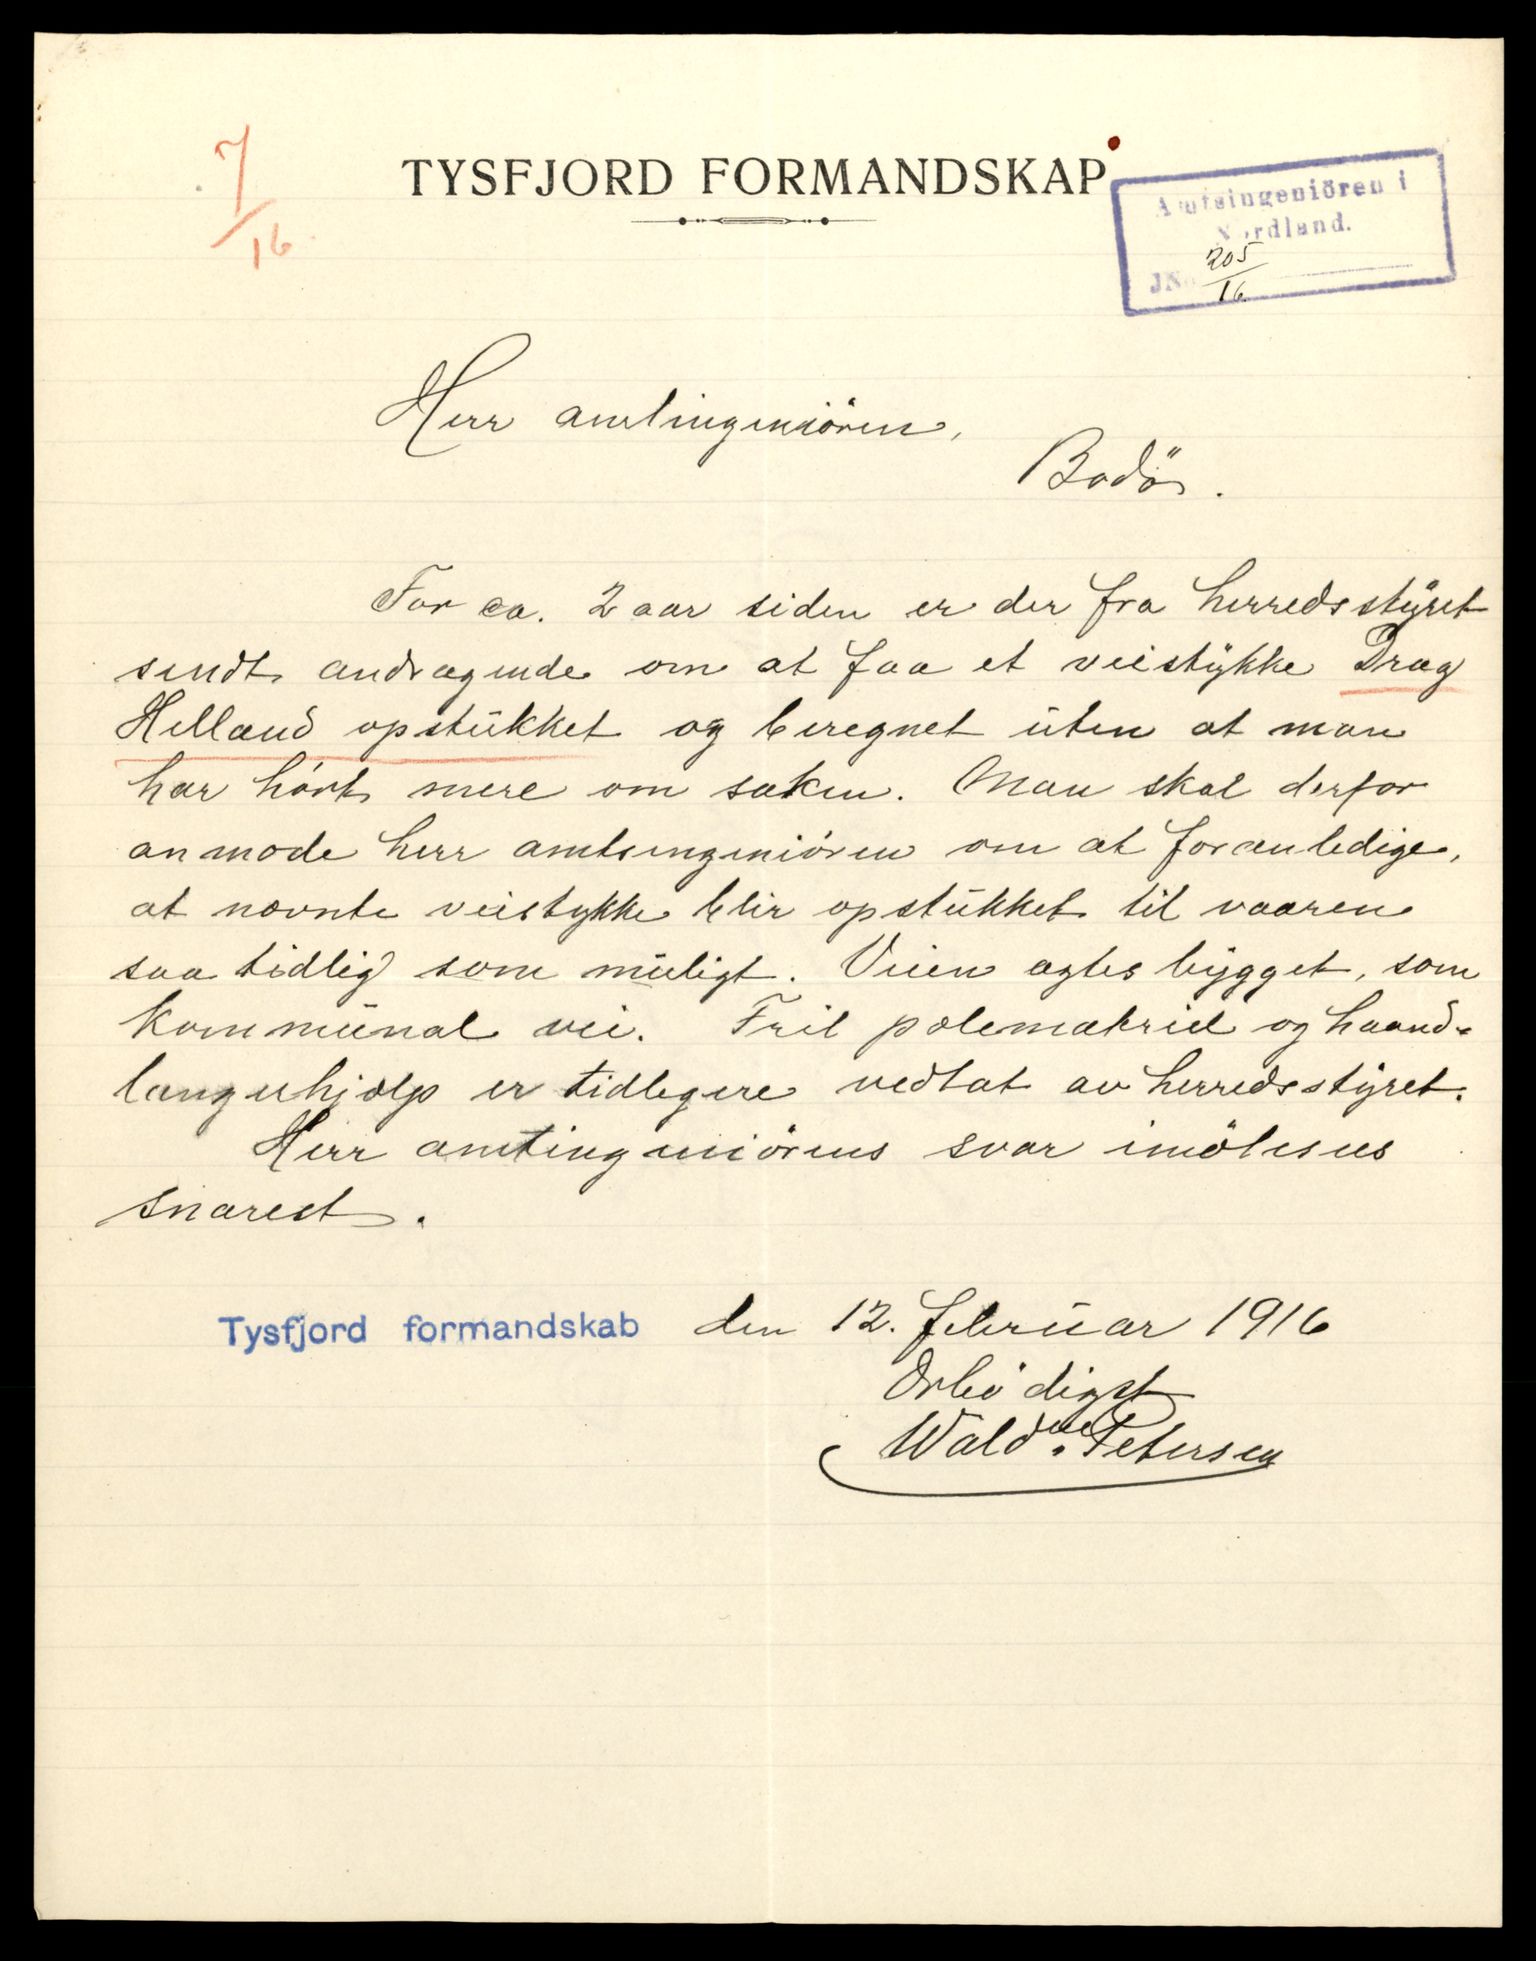 7/16
TYSFJORD FORMANDSKAP
Amtsingeniören i
Nordland.
JNo 205/16
Herr amtingeniören,
Bodö.
For ca. 2 aar siden er der fra herredsstyret
sendt andragende om at faa et veistykke Drag
Helland opstukket og beregnet uten at man
har hørt mere om saken. Man skal derfor
anmode herr amtsingeniören om at foranledige,
at nævnte veistykke blir opstukket til vaaren
saa tidlig som muligt. Veien agtes bygget, som
kommunal vei. Frit pælemateriel og haand-
langerhjælp er tidligere vedtat av herredsstyret.
Herr amtingeniörens svar imötesees
snarest.
Tysfjord formandskab den 12. februar 1916
Ærbödigst
Wald. Petersen